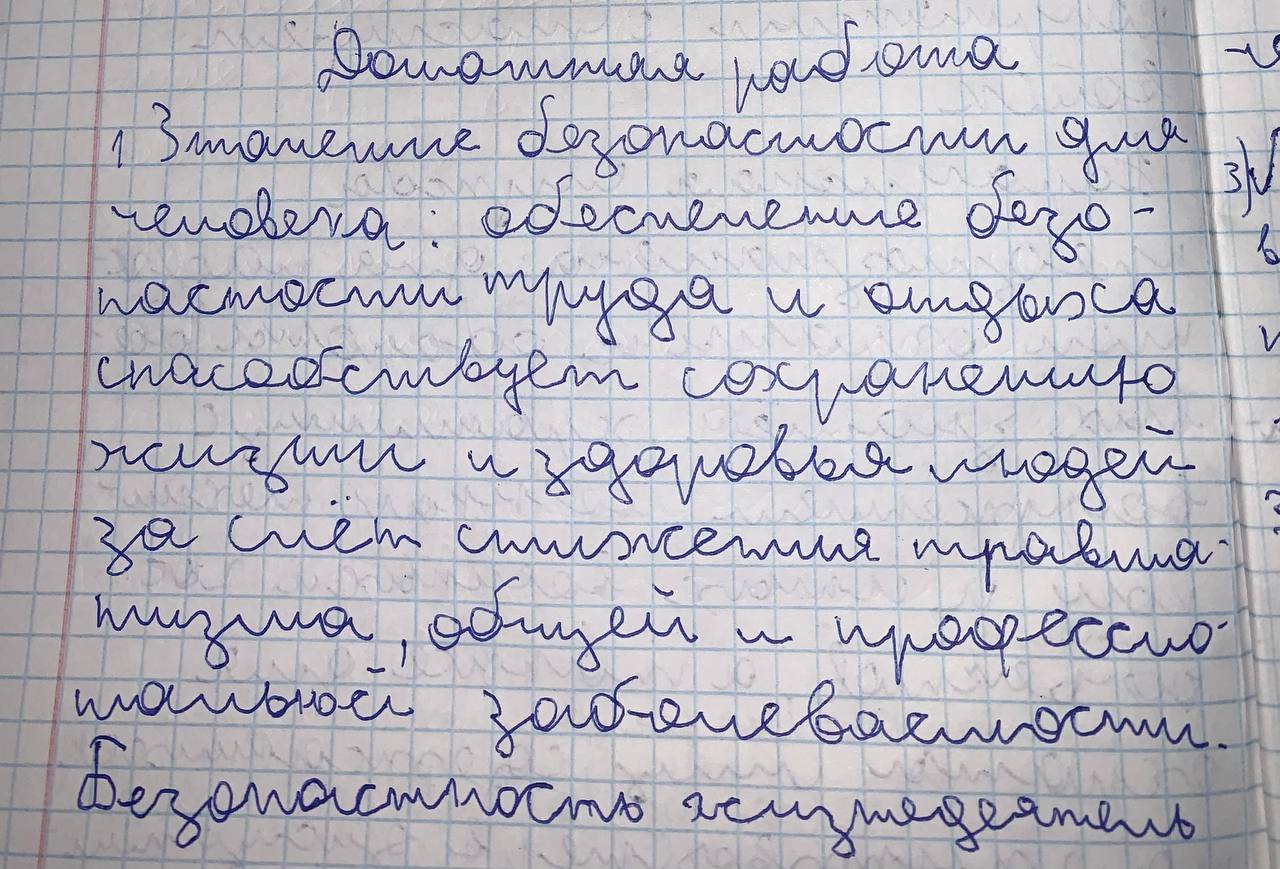 Домашняя работа
1 Значение безопасности для
человека: обеспечение безо-
пасности труда и отдыха
спасобствует сохранению
жизни и здоровья людей
за счёт снижения травма-
тизма, общей и профессио-
нальной заболеваемости.
Безопасность жизнедеятель
3)
в